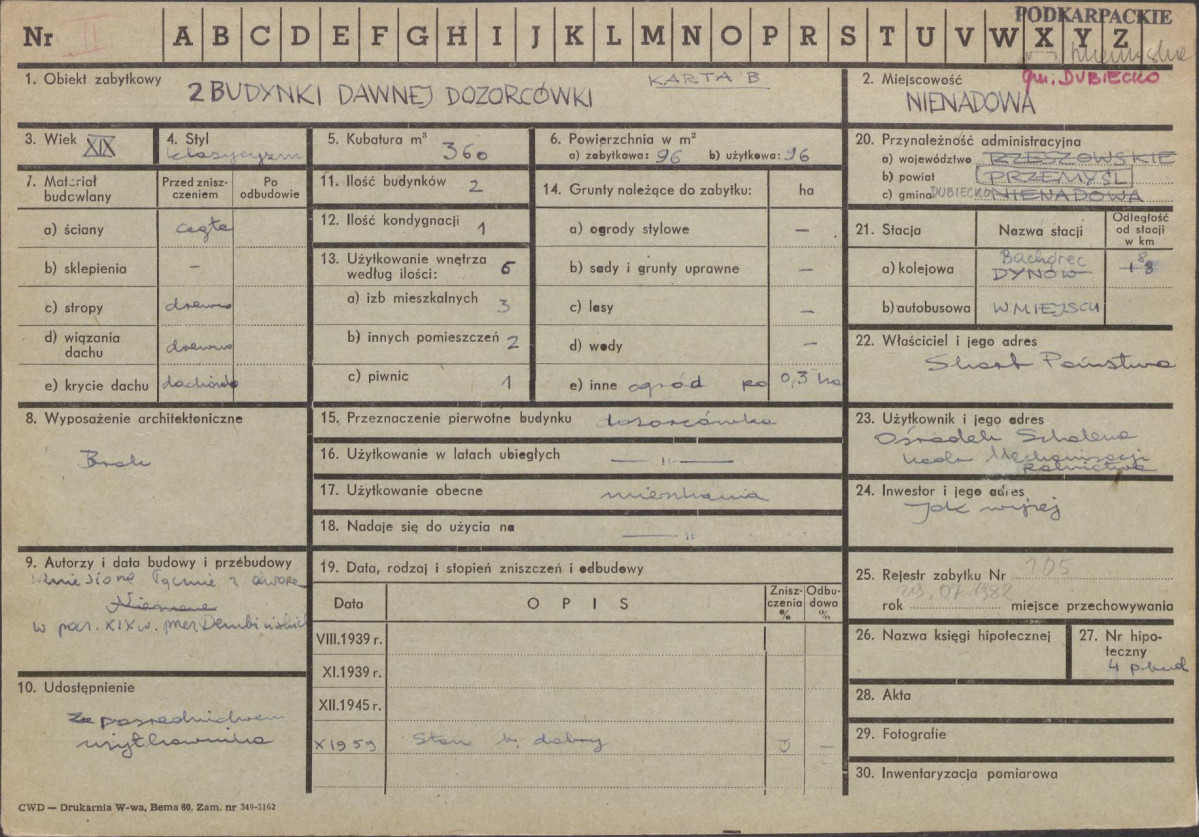 PODKARPACKIE
Nr II A B C D E F G H I J K L M N O P R S T U V W X Y Z
gm. DUBIECKO
1. Obiekt zabytkowy KARTA B
2 BUDYNKI DAWNEJ DOZORCÓWKI
2. Miejscowość
NIENADOWA
3. Wiek XIX
4. Styl
klasycyzm
5. Kubatura m³ 360
6. Powierzchnia w m²
a) zabytkowa: 96 b) użytkowa: 96
20. Przynależność administracyjna
a) województwo RZESZOWSKIE
b) powiat PRZEMYŚL
c) gmina DUBIECKO NIENADOWA
7. Materiał budowlany
Przed zniszczeniem
Po odbudowie
a) ściany cegła
b) sklepienia –
c) stropy drewno
d) wiązania dachu drewno
e) krycie dachu dachówka
11. Ilość budynków 2
12. Ilość kondygnacji 1
13. Użytkowanie wnętrza
według ilości: 6
a) izb mieszkalnych 3
b) innych pomieszczeń 2
c) piwnic 1
14. Grunty należące do zabytku: ha
a) ogrody stylowe –
b) sady i grunty uprawne –
c) lasy –
d) wody –
e) inne ogród po 0,3 ha
21. Stacja
Nazwa stacji
Odległość od stacji w km
a) kolejowa Bachórzec 8
DYNÓW 18
b) autobusowa W MIEJSCU
22. Właściciel i jego adres
Skarb Państwa
8. Wyposażenie architektoniczne
Brak
15. Przeznaczenie pierwotne budynku dozorcówka
16. Użytkowanie w latach ubiegłych — " —
17. Użytkowanie obecne mieszkania
18. Nadaje się do użycia na — "
23. Użytkownik i jego adres
Ośrodek Szkolenia
Kadr Mechanizacji
Rolnictwa
24. Inwestor i jego adres
Jak wyżej
9. Autorzy i data budowy i przebudowy
wzniesione łącznie z dworem
w poł. XIX w. przez Dembińskich
19. Data, rodzaj i stopień zniszczeń i odbudowy
Data
O P I S
Zniszczenia %
Odbudowa %
VIII.1939 r.
XI.1939 r.
XII.1945 r.
X 1959 Stan b. dobry 5 –
25. Rejestr zabytku Nr 105
rok 29.07.1982 miejsce przechowywania
26. Nazwa księgi hipotecznej
27. Nr hipoteczny
4 p. bud
10. Udostępnienie
Za pośrednictwem
użytkownika
28. Akta
29. Fotografie
30. Inwentaryzacja pomiarowa
CWD — Drukarnia W-wa, Bema 60. Zam. nr 349-5162